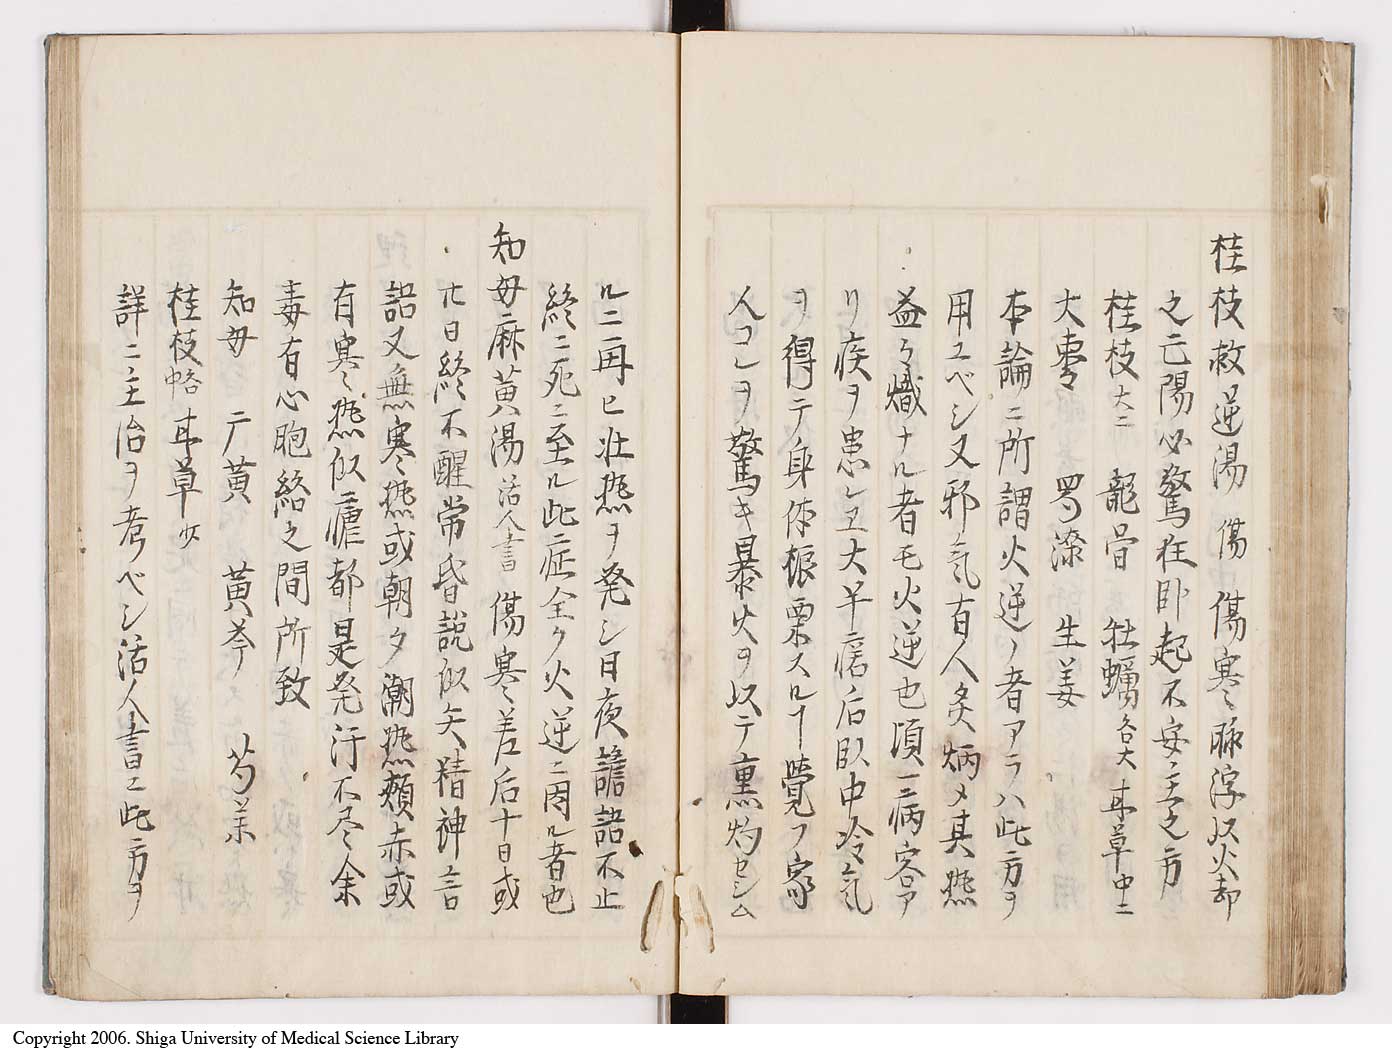 桂枝救逆湯 傷 傷寒ミ脉浮以火却
之亡陽必驚狂卧起不安ミ主之方
桂枝大二 龍骨 牡蠣各大 甘草中二
大棗 蜀漆 生姜
本論ニ所謂火逆ノ者アラハ此方ヲ
用ユベシ又邪気有人灸焫〆其熱
益々熾ナル者モ火逆也頃一病客ア
リ疾ヲ患シヱ大半瘥后臥中冷気
ヲ得テ身体振栗スルヿ覚フ家
人コレヲ驚キ暴火ヲ以テ熏灼セシム
ルニ再ヒ壮熱ヲ発シ日夜譫語不止
終ニ死ニ至ル此症全ク火逆ニ因ル者也
知母麻黄湯 活人書 傷寒ミ差后十日或
廿日終不醒常昏説似失精神言
語又無寒ミ熱或朝夕潮熱頬赤或
有寒ミ熱似瘧都是発汗不尽余
毒有心胞絡之間所致
知母 广黄 黄芩 芍薬
桂枝略 甘草 少
詳ニ主治ヲ考ベシ活人書ニ此方ヲ
Copyright 2006. Shiga University of Medical Science Library